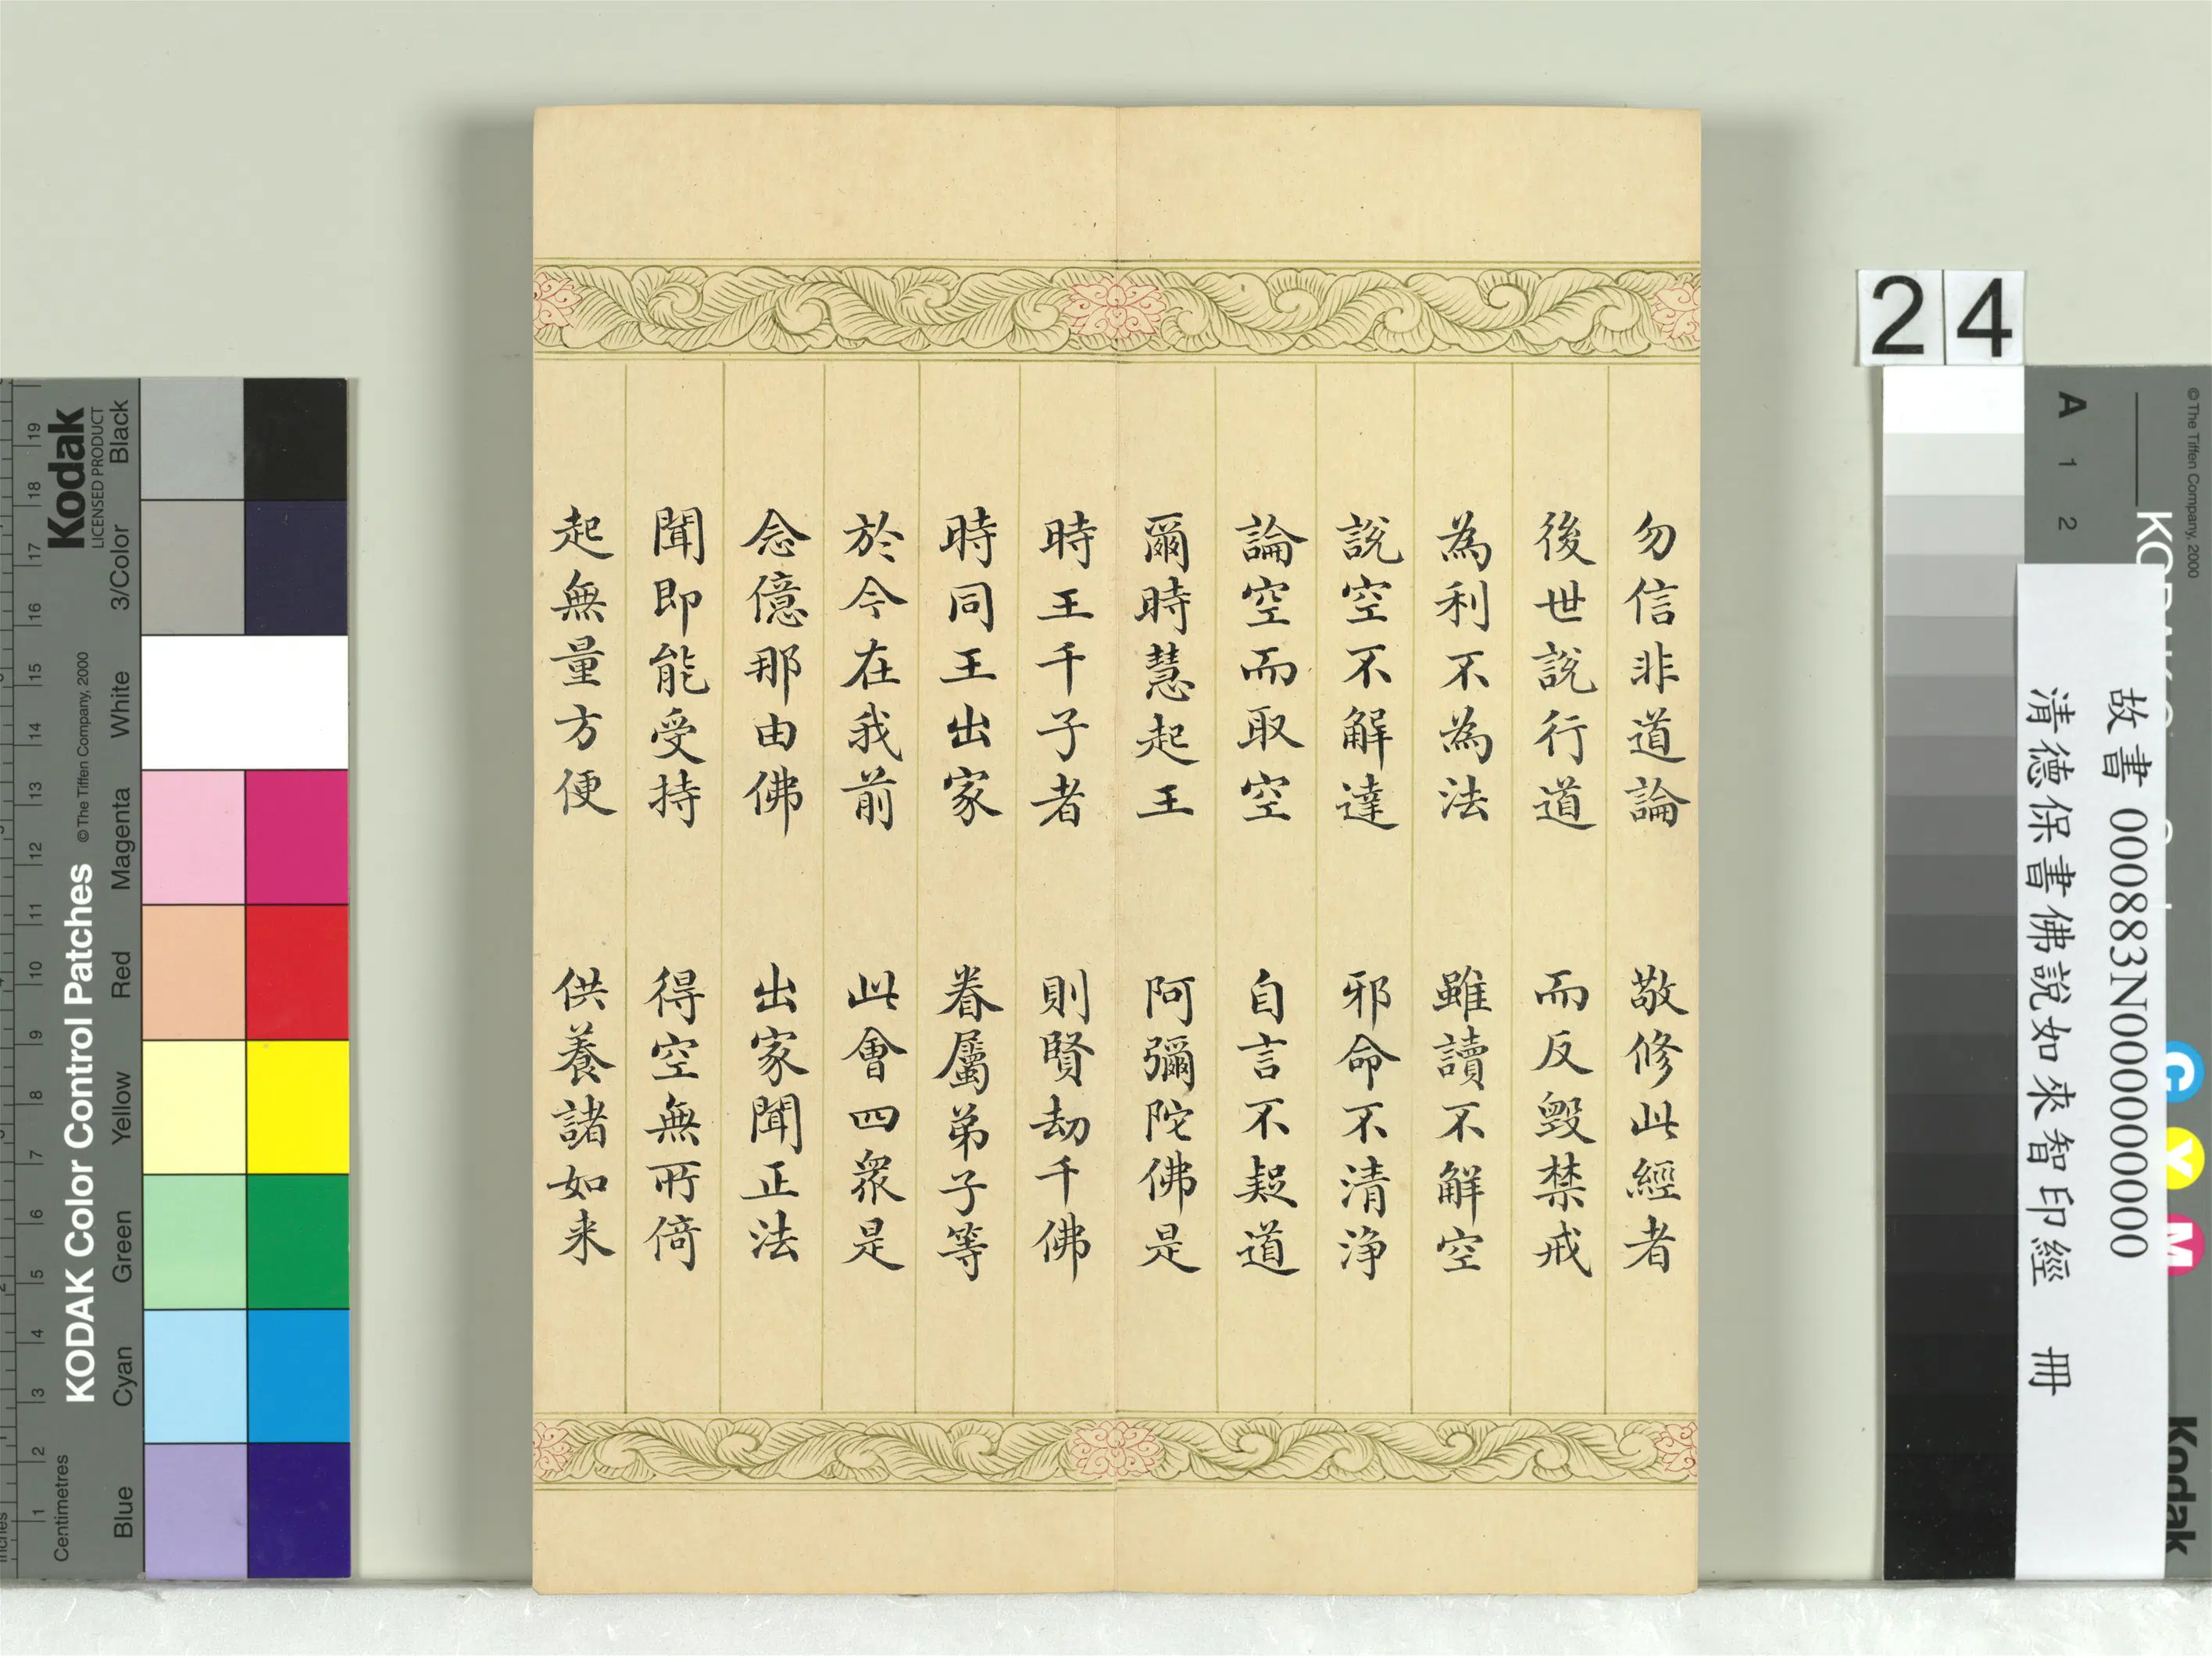 勿信非道論 敬修此經者
後世說行道 而反毀禁戒
為利不為法 雖讀不解空
說空不解達 邪命不清淨
論空而取空 自言不疑道
爾時慧起王 阿彌陀佛是
時王千子者 則賢劫千佛
時同王出家 眷屬弟子等
於今在我前 此會四眾是
念億那由佛 出家聞正法
聞即能受持 得空無所倚
起無量方便 供養諸如来
24
故書 000883N000000000
清德保書佛說如來智印經 冊
Kodak
LICENSED PRODUCT
KODAK Color Control Patches
© The Tiffen Company, 2000
Centimetres
1 2 3 4 5 6 7 8 9 10 11 12 13 14 15 16 17 18 19
Blue
Cyan
Green
Yellow
Red
Magenta
White
3/Color
Black
A 1 2
© The Tiffen Company, 2000
C
Y
M
Kodak